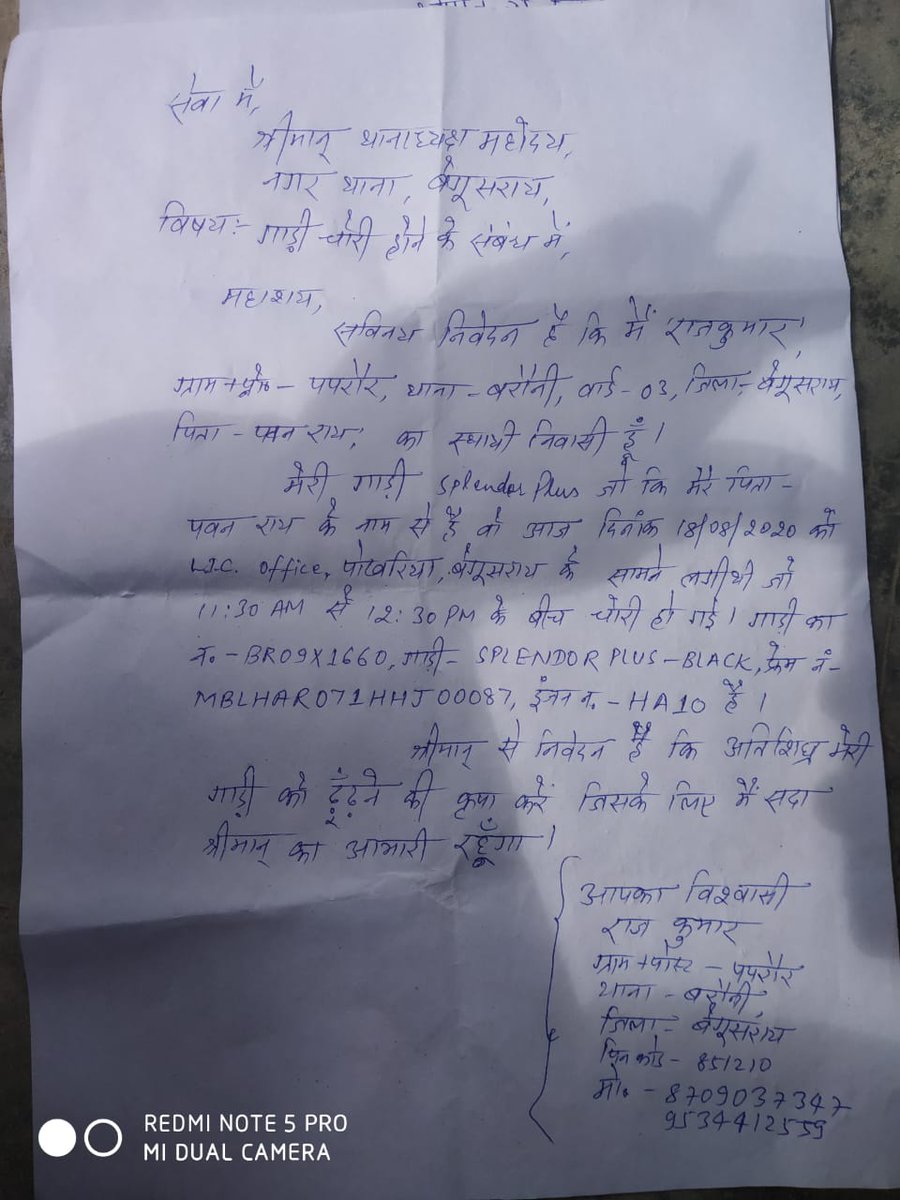 सेवा में,
श्रीमान् थानाध्यक्ष महोदय,
नगर थाना, बेगूसराय,
विषय:- गाड़ी चोरी होने के संबंध में,
महाशय,
सविनय निवेदन है कि मैं 'राजकुमार'
ग्राम+पोस्ट- पपरौर, थाना-बरौनी, वार्ड-03, जिला-बेगूसराय,
पिता- पवन राय, का स्थायी निवासी हूँ।
मेरी गाड़ी Splendor Plus जो कि मेरे पिता-
पवन राय के नाम से है वो आज दिनांक 18/08/2020 को
L.I.C. office, पोखरिया, बेगूसराय के सामने लगी थी जो
11:30 AM से 12:30 PM के बीच चोरी हो गई। गाड़ी का
नं.-BR09X1660, गाड़ी- SPLENDOR PLUS-BLACK, फ्रेम नं-
MBLHAR071HHJ00087, इंजन न.-HA10 है।
श्रीमान् से निवेदन है कि अतिशिघ्र मेरी
गाड़ी को ढूंढ़ने की कृपा करें जिसके लिए मैं सदा
श्रीमान् का आभारी रहूँगा।
आपका विश्वासी
राज कुमार
ग्राम+पोस्ट - पपरौर
थाना - बरौनी,
जिला- बेगूसराय
पिन कोड- 851210
मो. - 8709037347
9534412559
REDMI NOTE 5 PRO
MI DUAL CAMERA